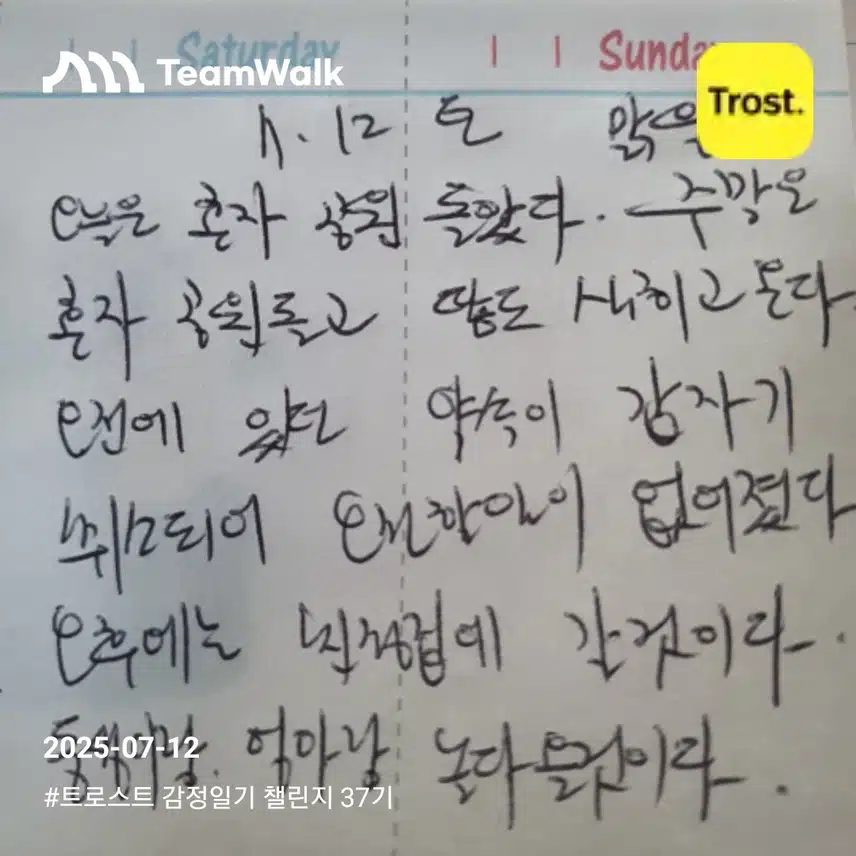 Saturday Sunday
TeamWalk
Trost.
7. 12 토 맑음
오늘은 혼자 공원 돌았다. 주말은
혼자 공원돌고 땀도 식히고 온다
오전에 있던 약속이 갑자기
취소되어 오전할일이 없어졌다
오후에는 친정집에 갈것이다.
동생이랑. 엄마랑 놀다올것이다.
2025-07-12
#트로스트 감정일기 챌린지 37기